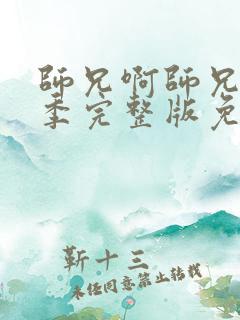 師兄啊師兄
季完整版免
靳十三
未经同意禁止转载